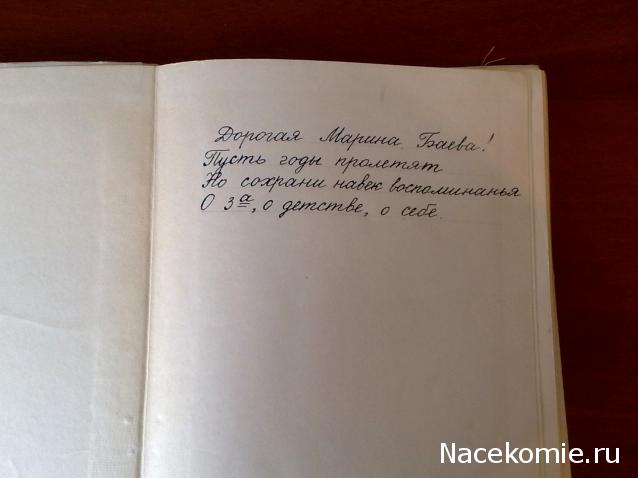 Дорогая Марина Баева!
Пусть годы пролетят
Но сохрани навек воспоминанья
О 3а, о детстве, о себе.
Nacekomie.ru